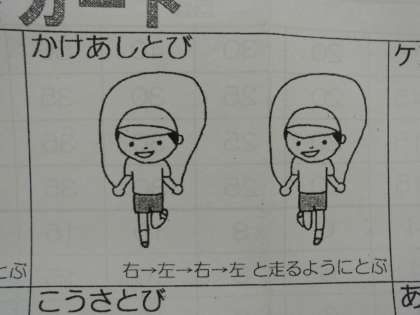 カード
かけあしとび
ケ
とぶ
右→左→右→左 と走るようにとぶ
こうさとび
あ